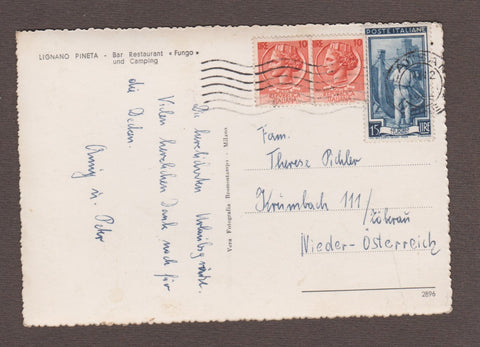 LIGNANO PINETA - Bar Restaurant «Fungo»
und Camping
Die herzlichsten Urlaubsgrüsse.
Vielen herzlichen Dank noch für
die Decken.
u. Peter
Vera Fotografia Bromostampa - Milano
POSTE ITALIANE
10
10
15 LIRE
Fam.
Therese Pichler
Krumbach 111/
Nieder-Österreich
2896